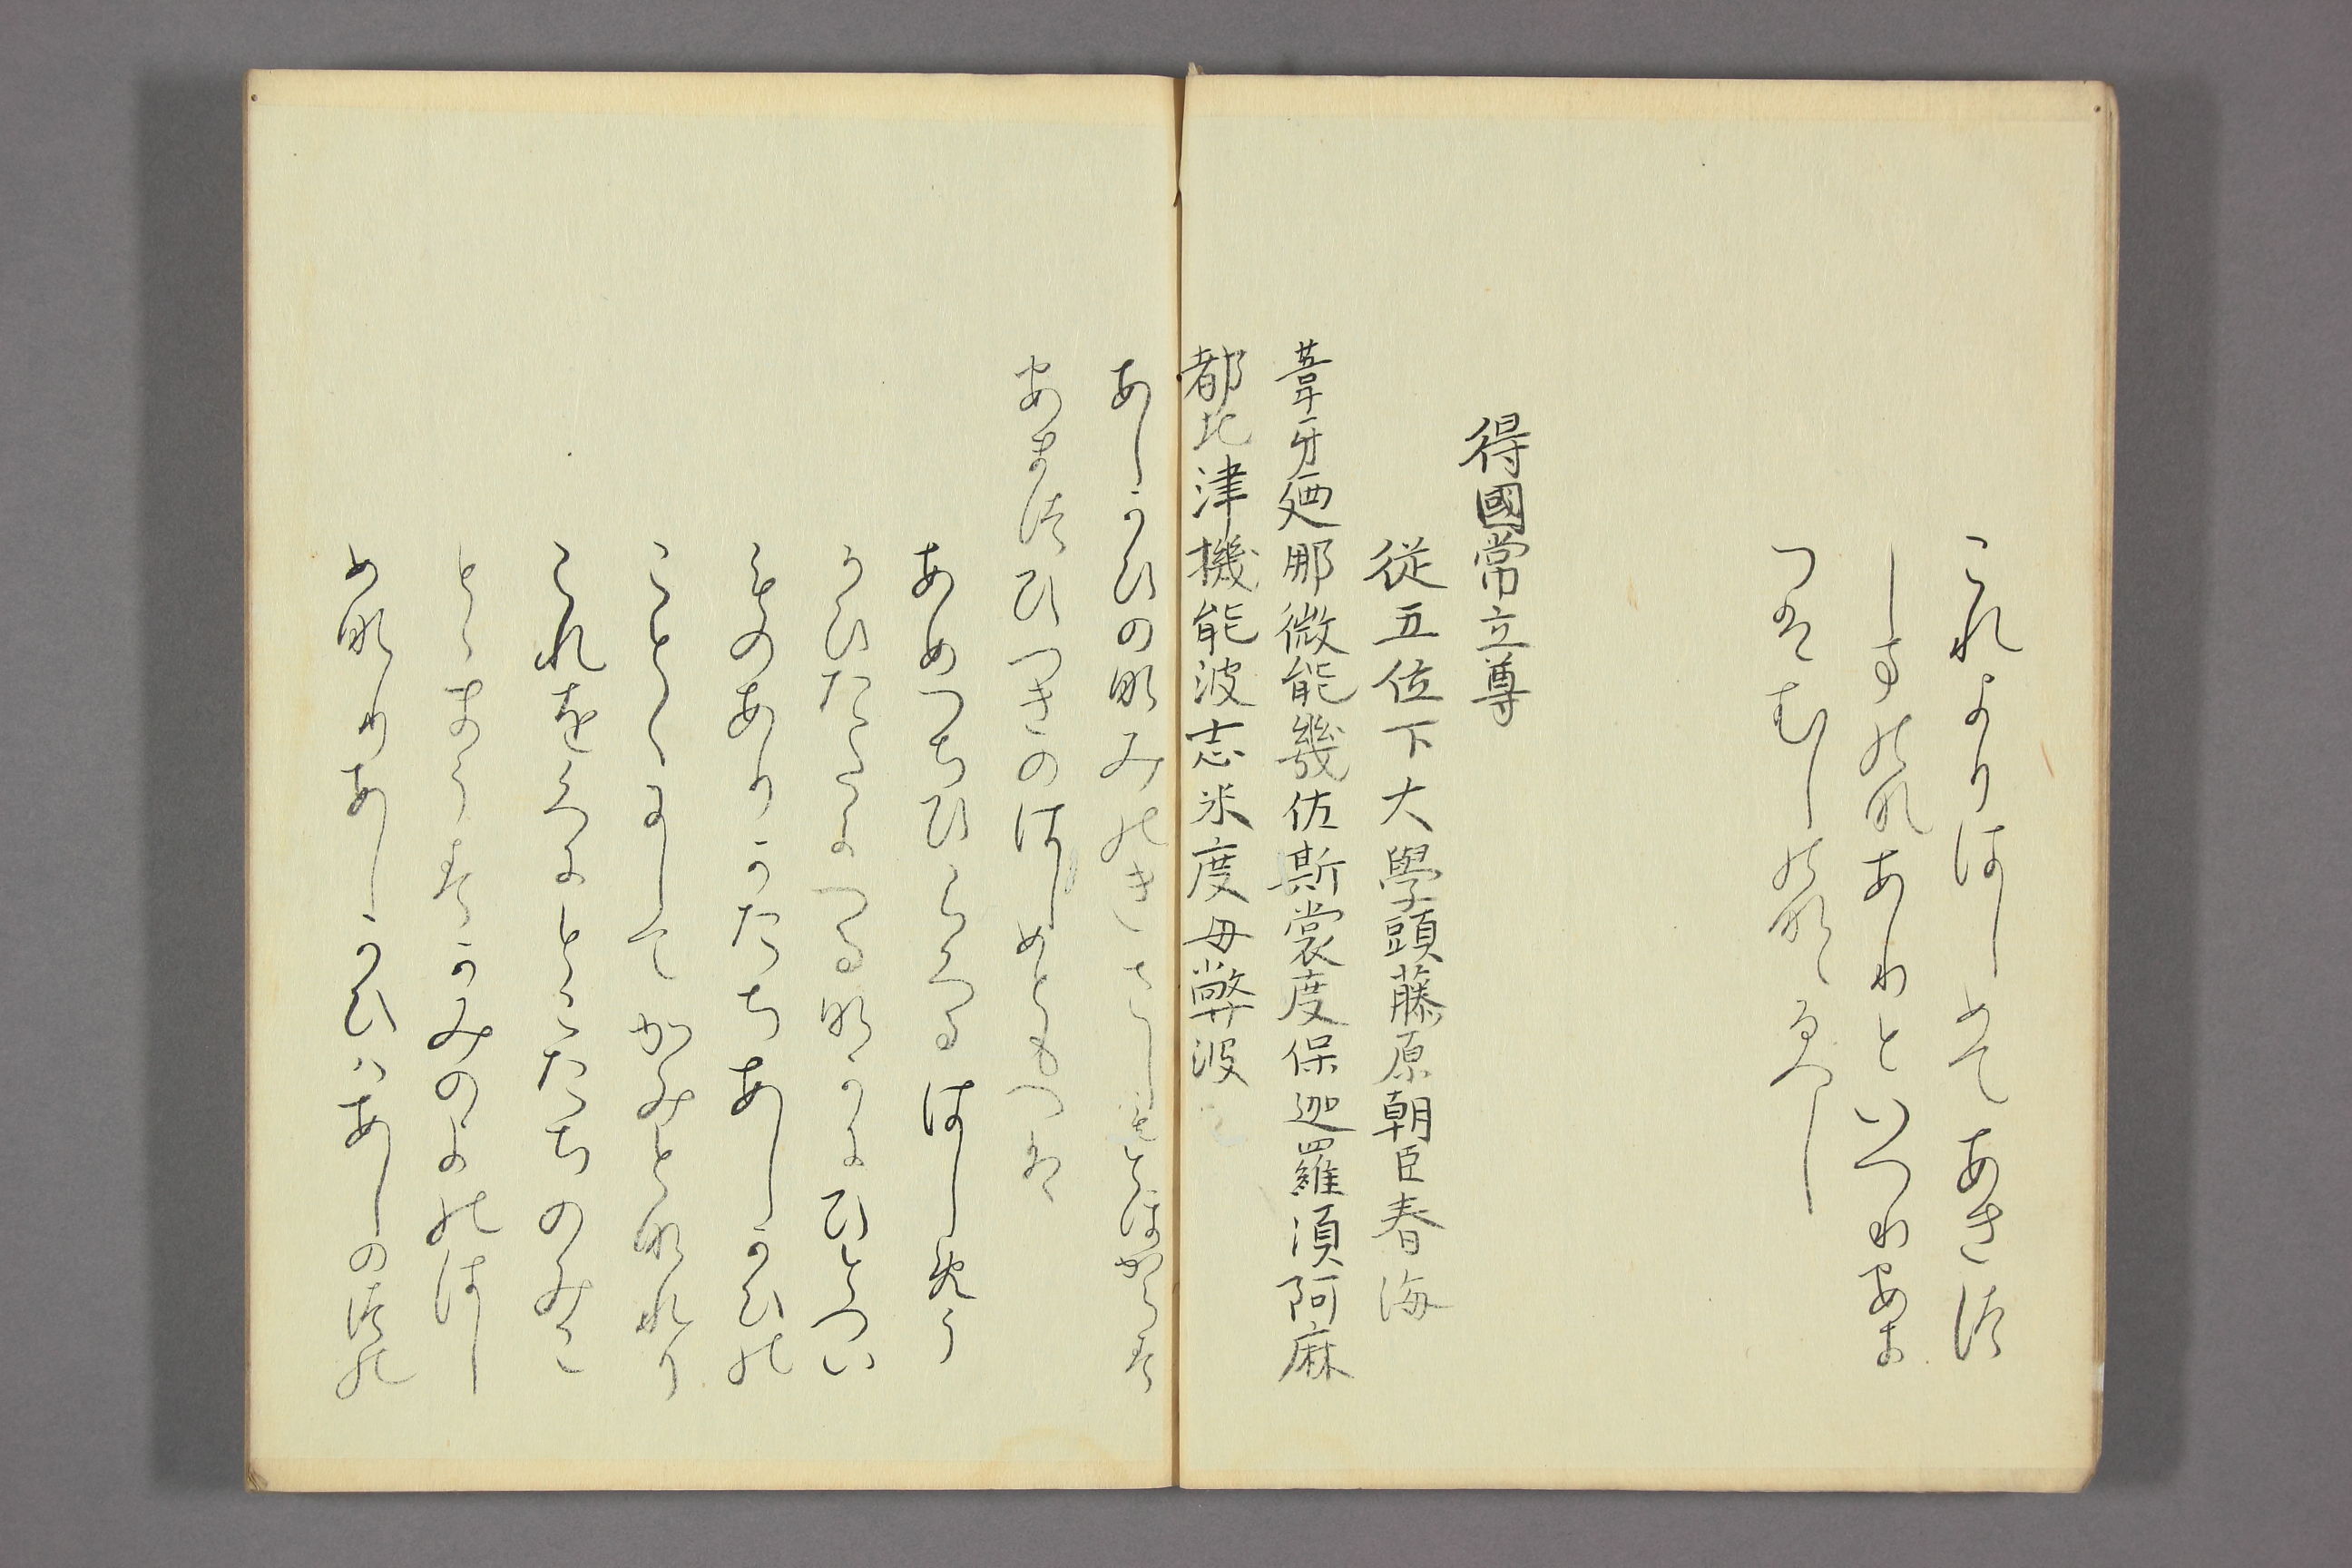 これよりはしめてあきつ
しまのなありといつわあま
つはむしのなゝるへし
得國常立尊
従五位下大學頭藤原朝臣春海
葦牙廼那微能幾佐斯裳度保迦羅湏阿麻
都比津機能波志米度毋弊波
あしかひのなみのきさしもとほからす
あまつひつきのはしめともへは
あめつちひらくるはしめう
かひたゝよへるなかにひとつい
ものありかたちあしかひの
ことくにしてかみとなれり
これをくにとこたちのみこ
とゝまうすかみのよのはし
めなりあしかひはあしのつの